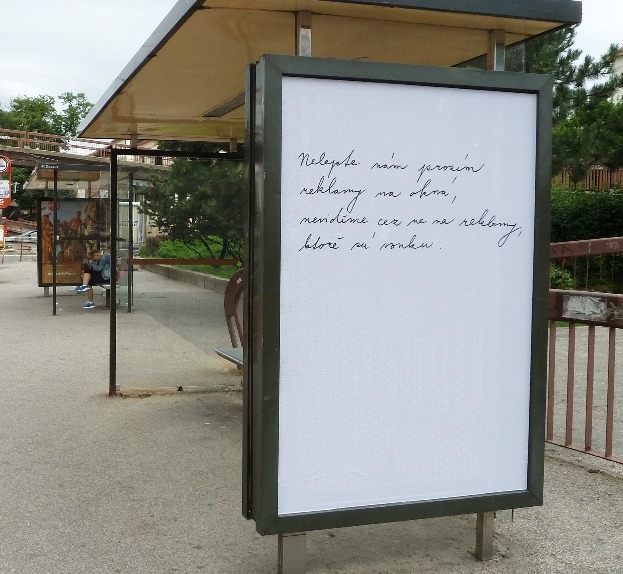 Nelepte nám prosím
reklamy na okná,
nevidíme cez ne na reklamy,
ktoré sú vonku.